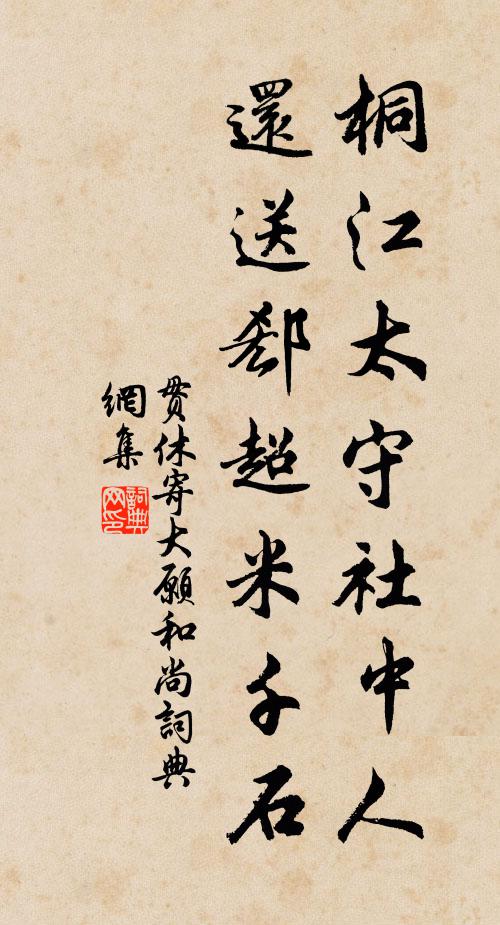 桐江太守社中人
還送郄超米千石
貫休寄大願和尚詞典
網集
詞典
网印